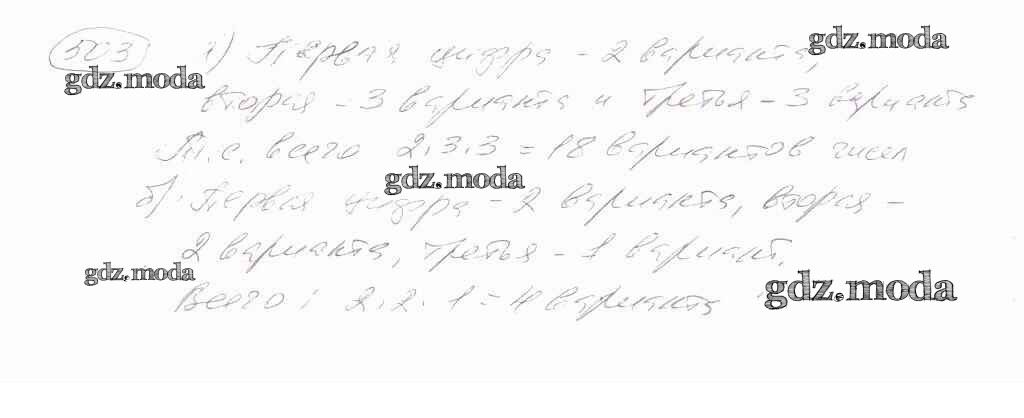 503 а) Первая цифра - 2 варианта, gdz.moda
gdz.moda
вторая - 3 варианта и третья - 3 варианта
Т.е. всего 2·3·3 = 18 вариантов чисел
gdz.moda
б) Первая цифра - 2 варианта, вторая -
2 варианта, третья - 1 вариант.
gdz.moda gdz.moda
Всего: 2·2·1 = 4 варианта